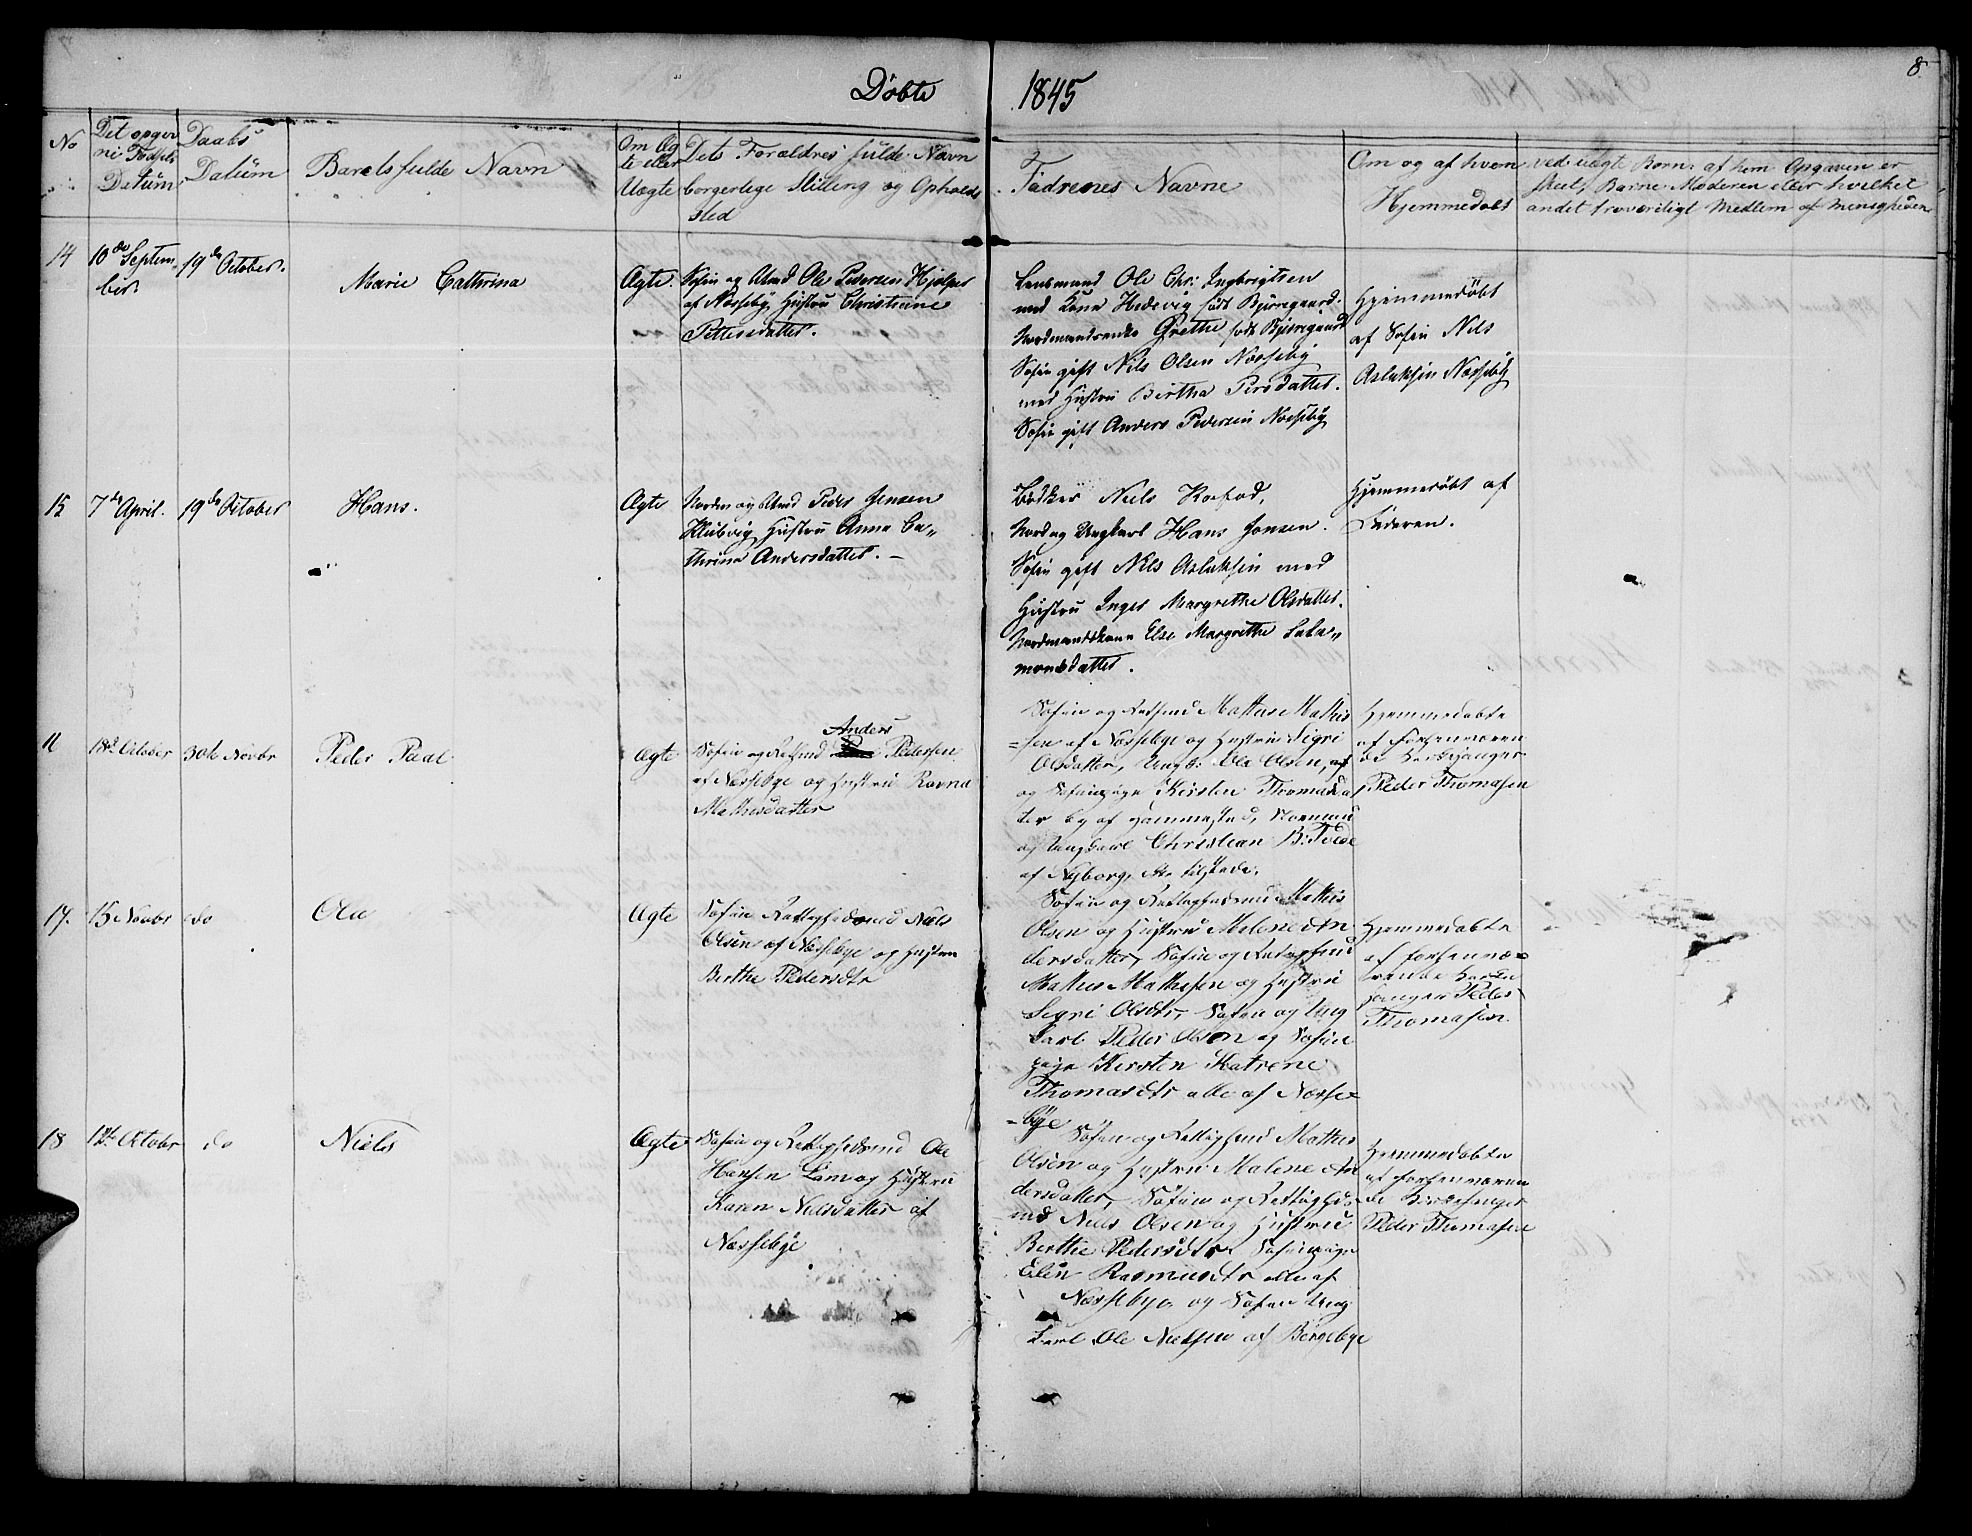 8
Døbte 1845
No
Det opgiv
ne Fødsels
Datum
Daabs
Datum
Barnets fulde Navn
Om Æg
te eller
Uægte
Dets Forældres fulde Navn
borgerlige Stilling og Opholds
sted
Fadrenes Navne
Om og af hvem
Hjemmedøbt
ved uægte Børn, af hvem Opgaven er
skeet, Barne-Moderen eller hvilket
andet troværdigt Medlem af Menigheden
14
10de Septem-
ber.
19de October.
Marie Cathrina
Ægte.
Søfin og Ole Pedersen Hjelper
af Næsseby, Hustru Christiane
Pettersdatter.
Lensmand Ole Chr: Ingbrigtsen
med Kone Hedevig født Bjursgaard.
Nordmandsenke Grethe født Bjursgaard
Søfin gift Nils Olsen Næsseby
med Hustru Birtha Persdatter.
Søfin gift Anders Pedersen Næsseby
Hjemmedøbt
af Søfin Nils
Aslaksen Næsseby
15
7de April.
19de October
Hans.
Ægte
Peder Jensen
Klubvig Hustru Anna Ca-
thrina Andersdatter. –
Bødker Niels Kofod,
Nord og Ungkarl Hans Jonsen.
Søfin gift Nils Aslaksen med
Hustru Inger Margrethe Olsdatter.
Nordmandskone Else Margrethe Sala-
monsdatter.
Hjemmedøbt af
Faderen.
18de October
30te Novbr
Peder Paal
Ægte
Anders
Søfin og Pedersen
af Næssebye og Hustru Ravna
Mathisdatter
Søfin og Mathis Mathis
-sen af Næssebye og Hustru Sigri
Olsdatter, Ungk. Ole Olsen,
og Søfinpige Kirsten Thomasda
ter og af sammested, Normand
og Ungkarl Christian B: Tvede
af Nyborg,
Hjemmedøbte
af forhenværen
de Kirkesanger
Peder Thomasen
17.
15 Novbr
do
Ole
Ægte
Søfin Niels
Olsen af Næssebye og Hustru
Berthe Pedersdtr
Søfin og Mathis
Olsen og Hustru Malene An
dersdatter, Søfin og
Mathis Mathisen og Hustru
Sigri Olsdtr, Søfin og Ung
karl Peder Olsen og Søfin
pige Kirsten Katrene
Thomasdtr alle af Næsse-
-bye
Hjemmedøbte
af forhenvæ-
rende Kirke
sanger Peder
Thomasen
18
12te Octobr
do
Niels
Ægte
Søfin og Ole
Hansen Lam og Hustru
Karen Nielsdatter af
Næssebye
Søfin og Mathis
Olsen og Hustru Malene An
dersdatter, Søfin og
Niels Olsen og Hustru
Berthe Pedersdtr Søfinpige
Elen Rasmusdtr alle af
Næssebye og Søfin Ung
karl Ole Nielsen af Bergebye
Hjemmedøbte
af forhenværen
de Kirkesanger
Peder Thomasen